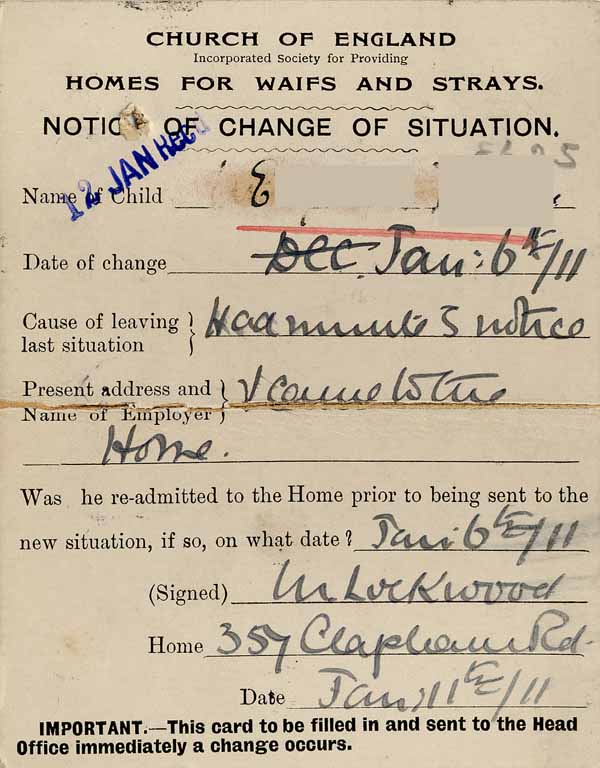 CHURCH OF ENGLAND
Incorporated Society for Providing
HOMES FOR WAIFS AND STRAYS.
NOTICE OF CHANGE OF SITUATION.
12 JAN RECD
Name of Child E
Date of change Dec. Jan: 6th/11
Cause of leaving } Had minute's notice
last situation }
Present address and } & came to the
Name of Employer }
Home.
Was he re-admitted to the Home prior to being sent to the
new situation, if so, on what date? Jan: 6th/11
(Signed) M. Lockwood
Home 357 Clapham Rd.
Date Jan: 11th/11
IMPORTANT.—This card to be filled in and sent to the Head
Office immediately a change occurs.